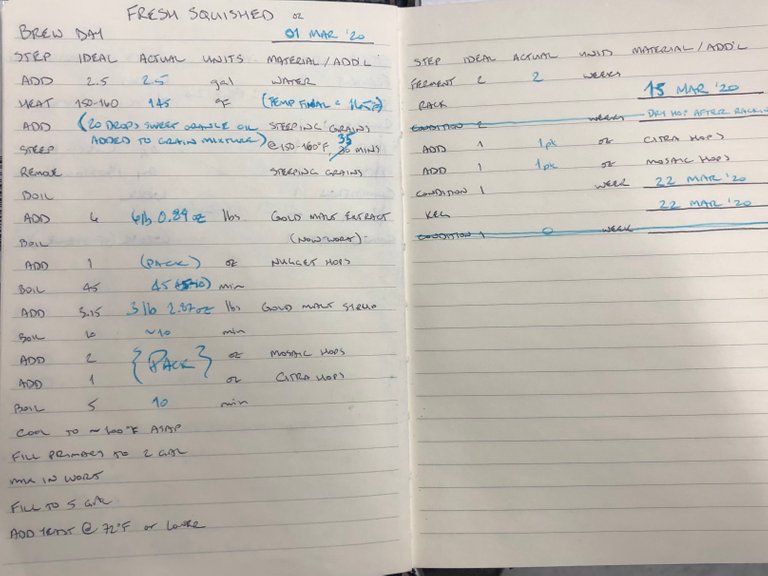 FRESH SQUISHED
BREW DAY 01 MAR '20
STEP IDEAL ACTUAL UNITS MATERIAL/ADD'L
ADD 2.5 2.5 gal WATER
HEAT 150-160 145 °F (TEMP FINAL = 165°F)
ADD (20 DROPS SWEET ORANGE OIL STEEPING GRAINS
ADDED TO GRAIN MIXTURE) 35
STEEP @150-160°F 30 MINS
REMOVE STEEPING GRAINS
BOIL
ADD 6 6lb 0.84oz lbs GOLD MALT EXTRACT
BOIL (NOW WORT)
ADD 1 (PACK) oz NUGGET HOPS
BOIL 45 45 min
ADD 3.15 3 lb 2.87oz lbs GOLD MALT SYRUP
BOIL 10 ~10 min
ADD 2 {PACK} oz MOSAIC HOPS
ADD 1 oz CITRA HOPS
BOIL 5 10 min
COOL TO ~100°F ASAP
FILL PRIMARY TO 2 GAL
MIX IN WORT
FILL TO 5 GAL
ADD YEAST @ 72°F or LOWER
STEP IDEAL ACTUAL UNITS MATERIAL/ADD'L
FERMENT 2 2 WEEKS
RACK 15 MAR '20
CONDITION 2 WEEKS DRY HOP AFTER RACKING
ADD 1 1pk oz CITRA HOPS
ADD 1 1pk oz MOSAIC HOPS
CONDITION 1 WEEK 22 MAR '20
KEG 22 MAR '20
CONDITION 1 0 WEEK